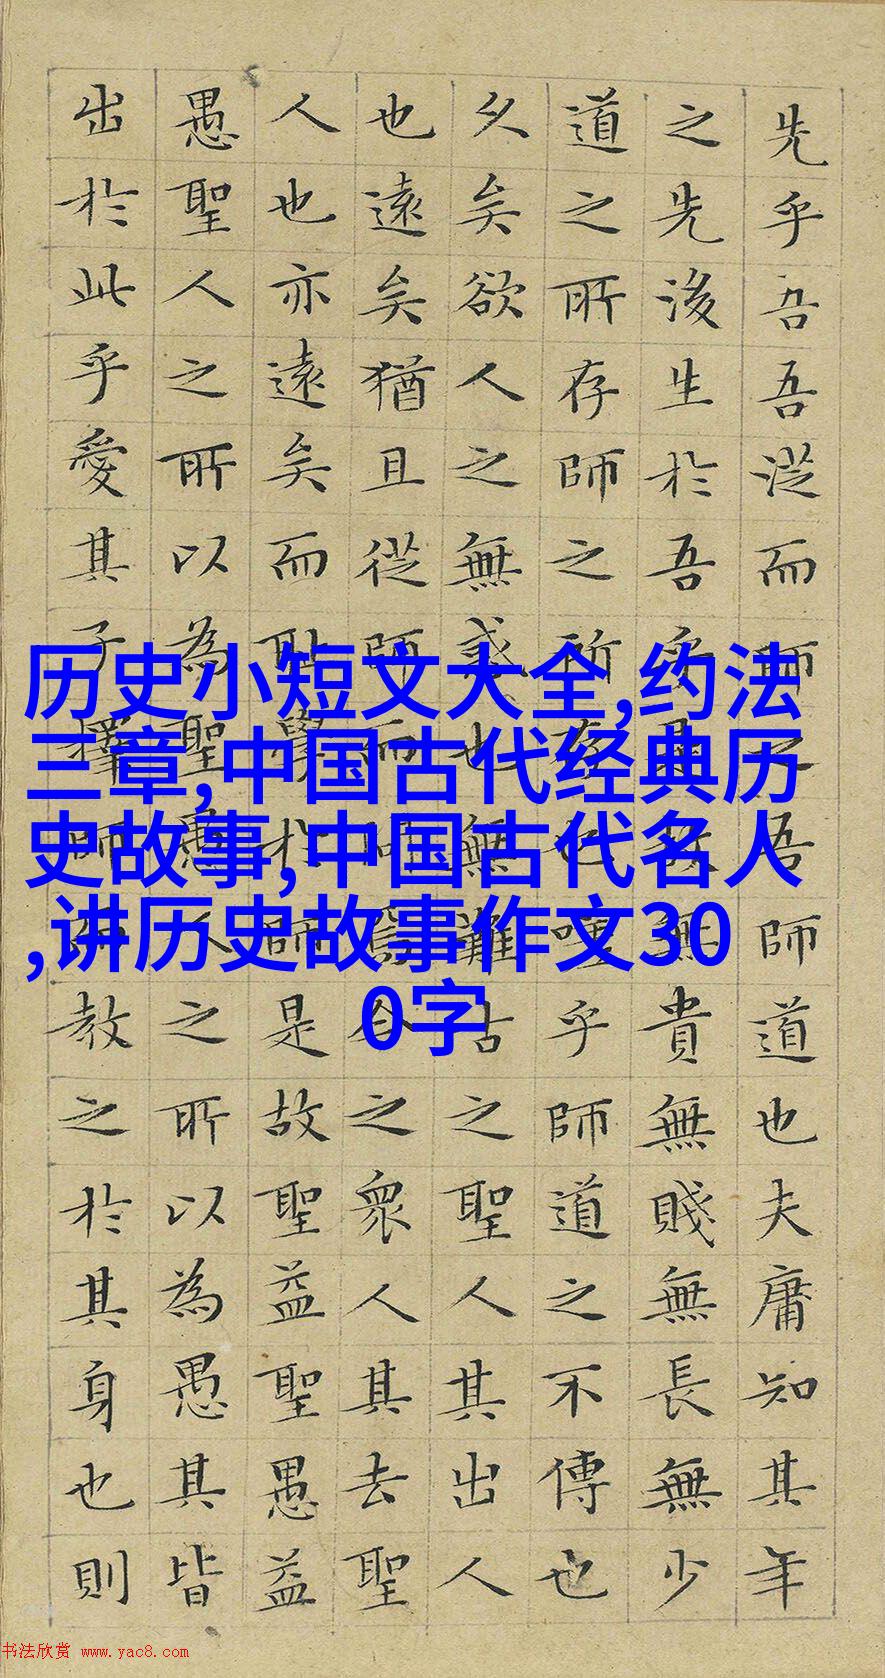 先乎吾吾從而師之吾師道也夫庸知其年
之先後生於吾乎是故無貴無賤無長無少
道之所存師之所存也嗟乎師道之不傳也
久矣欲人之無惑也無難古之聖人其出人
也遠矣猶且從師而問焉今之衆人其去聖
人也亦遠矣而恥學於師是故聖益聖愚益
愚聖人之所以為聖愚人之所以為愚其皆
出於此乎愛其子擇師而教之於其身也則
历史小短文大全,约法
三章,中国古代经典历
史故事,中国古代名人
,讲历史故事作文30
0字
书法欣赏 www.yac8.com